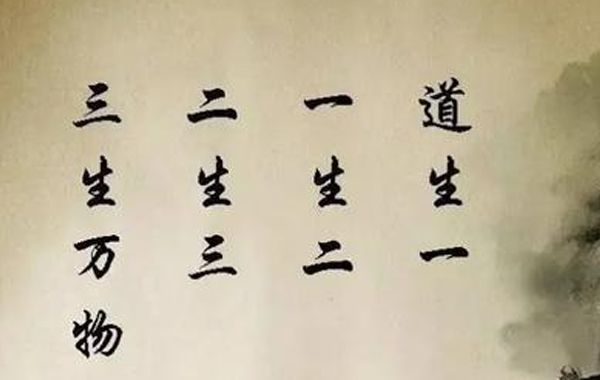 道生一
一生二
二生三
三生万物